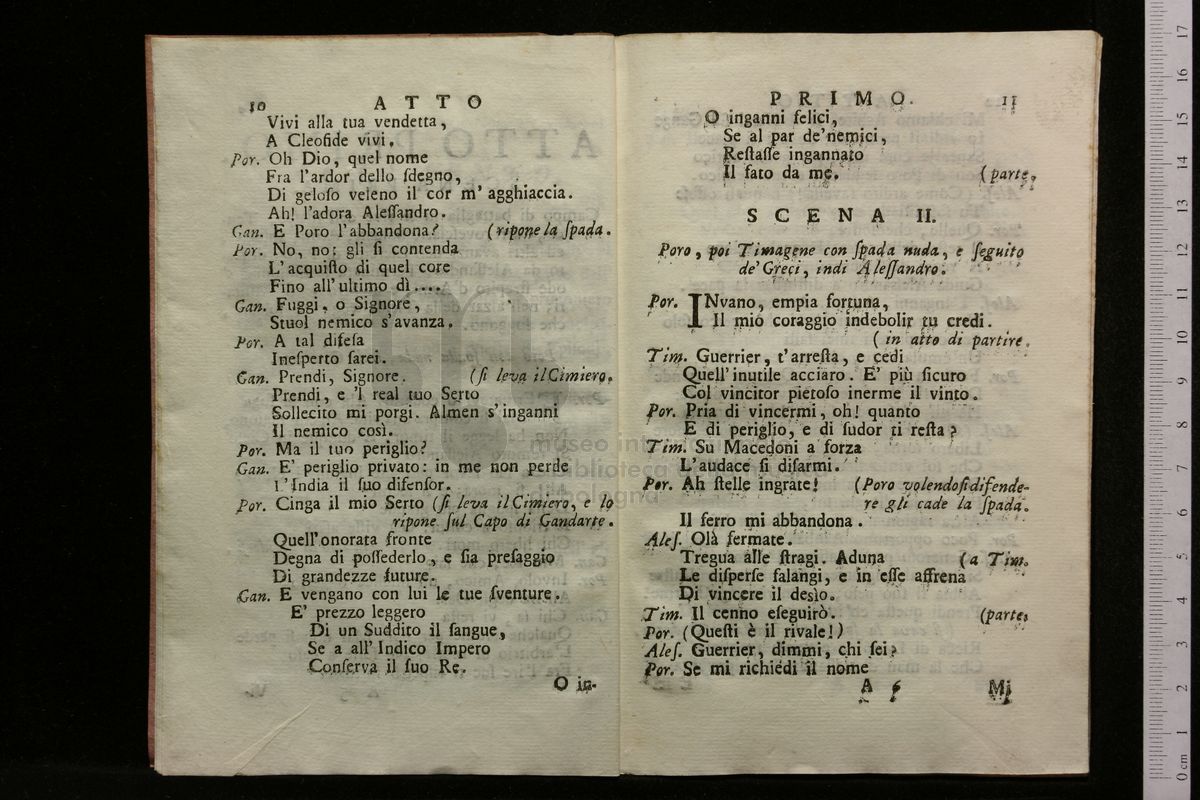 10 ATTO
Vivi alla tua vendetta,
A Cleofide vivi.
Por. Oh Dio, quel nome
Fra l'ardor dello ſdegno,
Di geloſo veleno il cor m'agghiaccia.
Ah! l'adora Aleſſandro.
Gan. E Poro l'abbandona? (ripone la ſpada.
Por. No, no: gli ſi contenda
L'acquiſto di quel core
Fino all'ultimo dì....
Gan. Fuggi, o Signore,
Stuol nemico s'avanza.
Por. A tal difeſa
Ineſperto ſarei.
Gan. Prendi, Signore. (ſi leva il Cimiero.
Prendi, e 'l real tuo Serto
Sollecito mi porgi. Almen s'inganni
Il nemico così.
Por. Ma il tuo periglio?
Gan. E' periglio privato: in me non perde
L'India il ſuo difenſor.
Por. Cinga il mio Serto (ſi leva il Cimiero, e lo
ripone ſul Capo di Gandarte.
Quell'onorata fronte
Degna di poſſederlo, e ſia preſaggio
Di grandezze future.
Gan. E vengano con lui le tue ſventure.
E' prezzo leggero
Di un Suddito il ſangue,
Se a all'Indico Impero
Conſerva il ſuo Re.
O in-
PRIMO. 11
O inganni felici,
Se al par de'nemici,
Reſtaſſe ingannato
Il fato da me. (parte.
SCENA II.
Poro, poi Timagene con ſpada nuda, e ſeguito
de' Greci, indi Aleſſandro.
Por. INvano, empia fortuna,
Il mio coraggio indebolir tu credi.
(in atto di partire.
Tim. Guerrier, t'arreſta, e cedi
Quell'inutile acciaro. E' più ſicuro
Col vincitor pietoſo inerme il vinto.
Por. Pria di vincermi, oh! quanto
E di periglio, e di ſudor ti reſta?
Tim. Su Macedoni a forza
L'audace ſi diſarmi.
Por. Ah ſtelle ingrate! (Poro volendoſi difende-
re gli cade la ſpada.
Il ferro mi abbandona.
Aleſ. Olà fermate.
Tregua alle ſtragi. Aduna (a Tim.
Le diſperſe falangi, e in eſſe affrena
Di vincere il desìo.
Tim. Il cenno eſeguirò. (parte.
Por. (Queſti è il rivale!)
Aleſ. Guerrier, dimmi, chi ſei?
Por. Se mi richiedi il nome
A 6 Mi